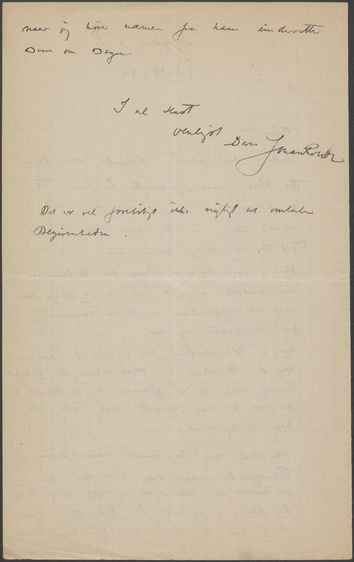 naar jeg hører nærmere fra ham underrette
Dem om Dagen
I al Hast
venligst Deres Johan Rohde
Det er vel foreløbigt ikke nødvigt at omtale
Begivenheden.